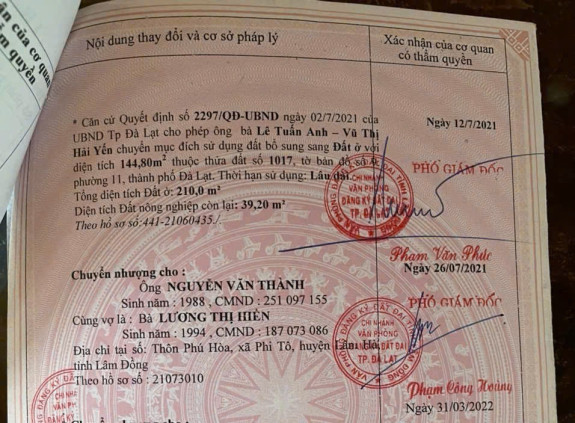 ận của cơ quan
thẩm quyền
Nội dung thay đổi và cơ sở pháp lý
Xác nhận của cơ quan
có thẩm quyền
* Căn cứ Quyết định số 2297/QĐ-UBND ngày 02/7/2021 của
UBND Tp Đà Lạt cho phép ông bà Lê Tuấn Anh – Vũ Thị
Hải Yến chuyển mục đích sử dụng đất bổ sung sang Đất ở với
diện tích 144,80m² thuộc thửa đất số 1017, tờ bản đồ số
phường 11, thành phố Đà Lạt. Thời hạn sử dụng: Lâu dài.
Tổng diện tích Đất ở : 210,0 m²
Diện tích Đất nông nghiệp còn lại: 39,20 m²
Theo hồ sơ số:441-21060435./.
Ngày 12/7/2021
PHÓ GIÁM ĐỐC
CHI NHÁNH
VĂN PHÒNG
ĐĂNG KÝ ĐẤT ĐAI
TP. ĐÀ LẠT
Phạm Văn Phúc
Chuyển nhượng cho :
Ông NGUYỄN VĂN THÀNH
Sinh năm : 1988 , CMND : 251 097 155
Cùng vợ là : Bà LƯƠNG THỊ HIỀN
Sinh năm : 1994 , CMND : 187 073 086
Địa chỉ tại số: Thôn Phú Hòa, xã Phi Tô, huyện Lâm Hà,
tỉnh Lâm Đồng
Theo hồ sơ số : 21073010
Ngày 26/07/2021
PHÓ GIÁM ĐỐC
CHI NHÁNH
VĂN PHÒNG
ĐĂNG KÝ ĐẤT ĐAI
TP. ĐÀ LẠT
Phạm Công Hoàng
Ngày 31/03/2022